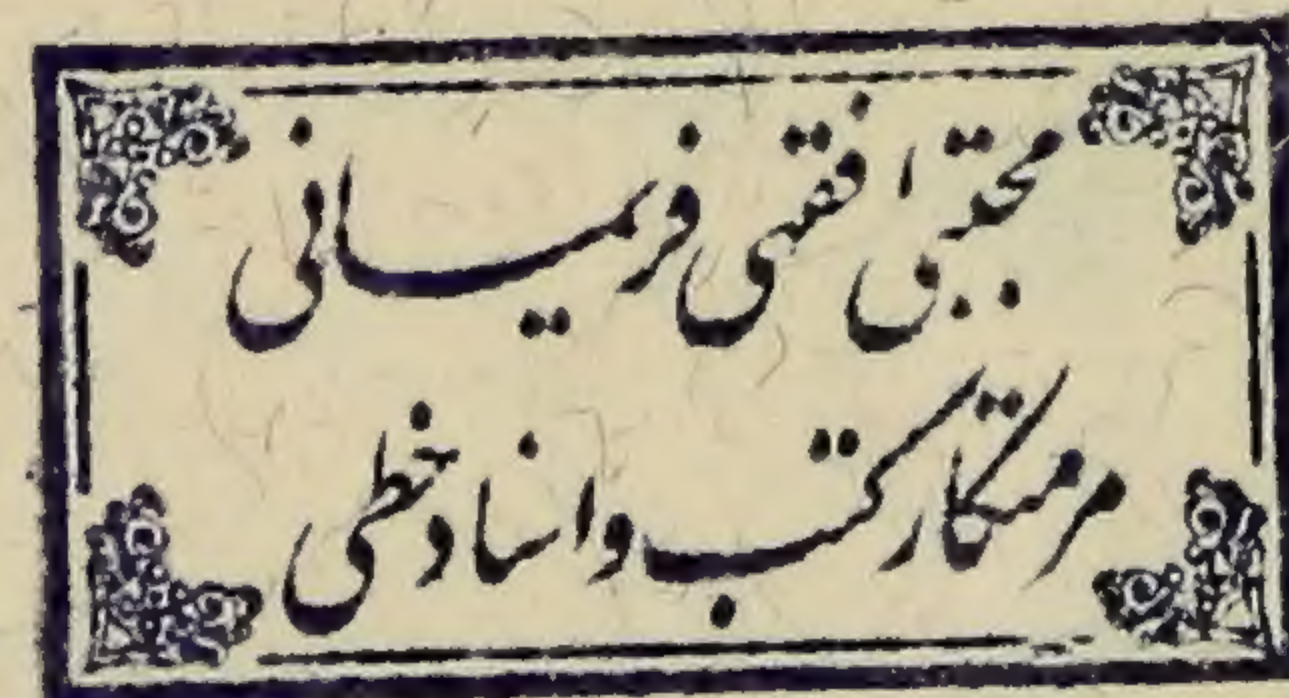 مجتبی فقهی فریمانی
مرمتکار کتب و اسناد خطی